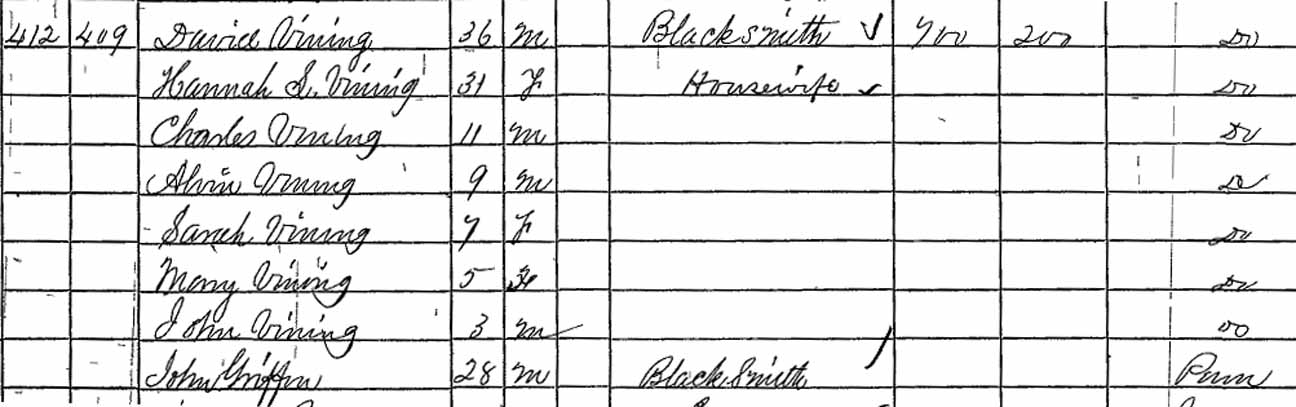 412 409 David Vining 36 m Blacksmith ✓ 700 200 Do
Hannah S. Vining 31 F Housewife ✓ Do
Charles Vining 11 m Do
Alvin Vining 9 m Do
Sarah Vining 7 F Do
Mary Vining 5 F Do
John Vining 3 m Do
John Griffin 28 m Black Smith Penn